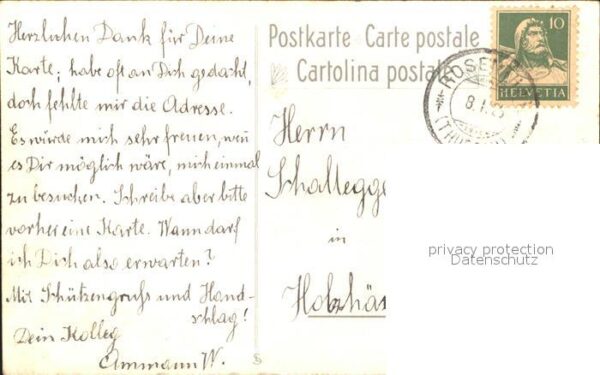 Herzlichen Dank für Deine
Karte; habe oft an Dich gedacht,
doch fehlte mir die Adresse.
Es würde mich sehr freuen, wenn
es Dir möglich wäre, mich einmal
zu besuchen. Schreibe aber bitte
vorher eine Karte. Wann darf
ich Dich also erwarten?
Mit Schützengruss und Hand-
schlag!
Dein Kolleg
Ammann W.
Postkarte Carte postale
Cartolina postale
10
HELVETIA
Herrn
Schallegge
in
Holzhäus
privacy protection
Datenschutz